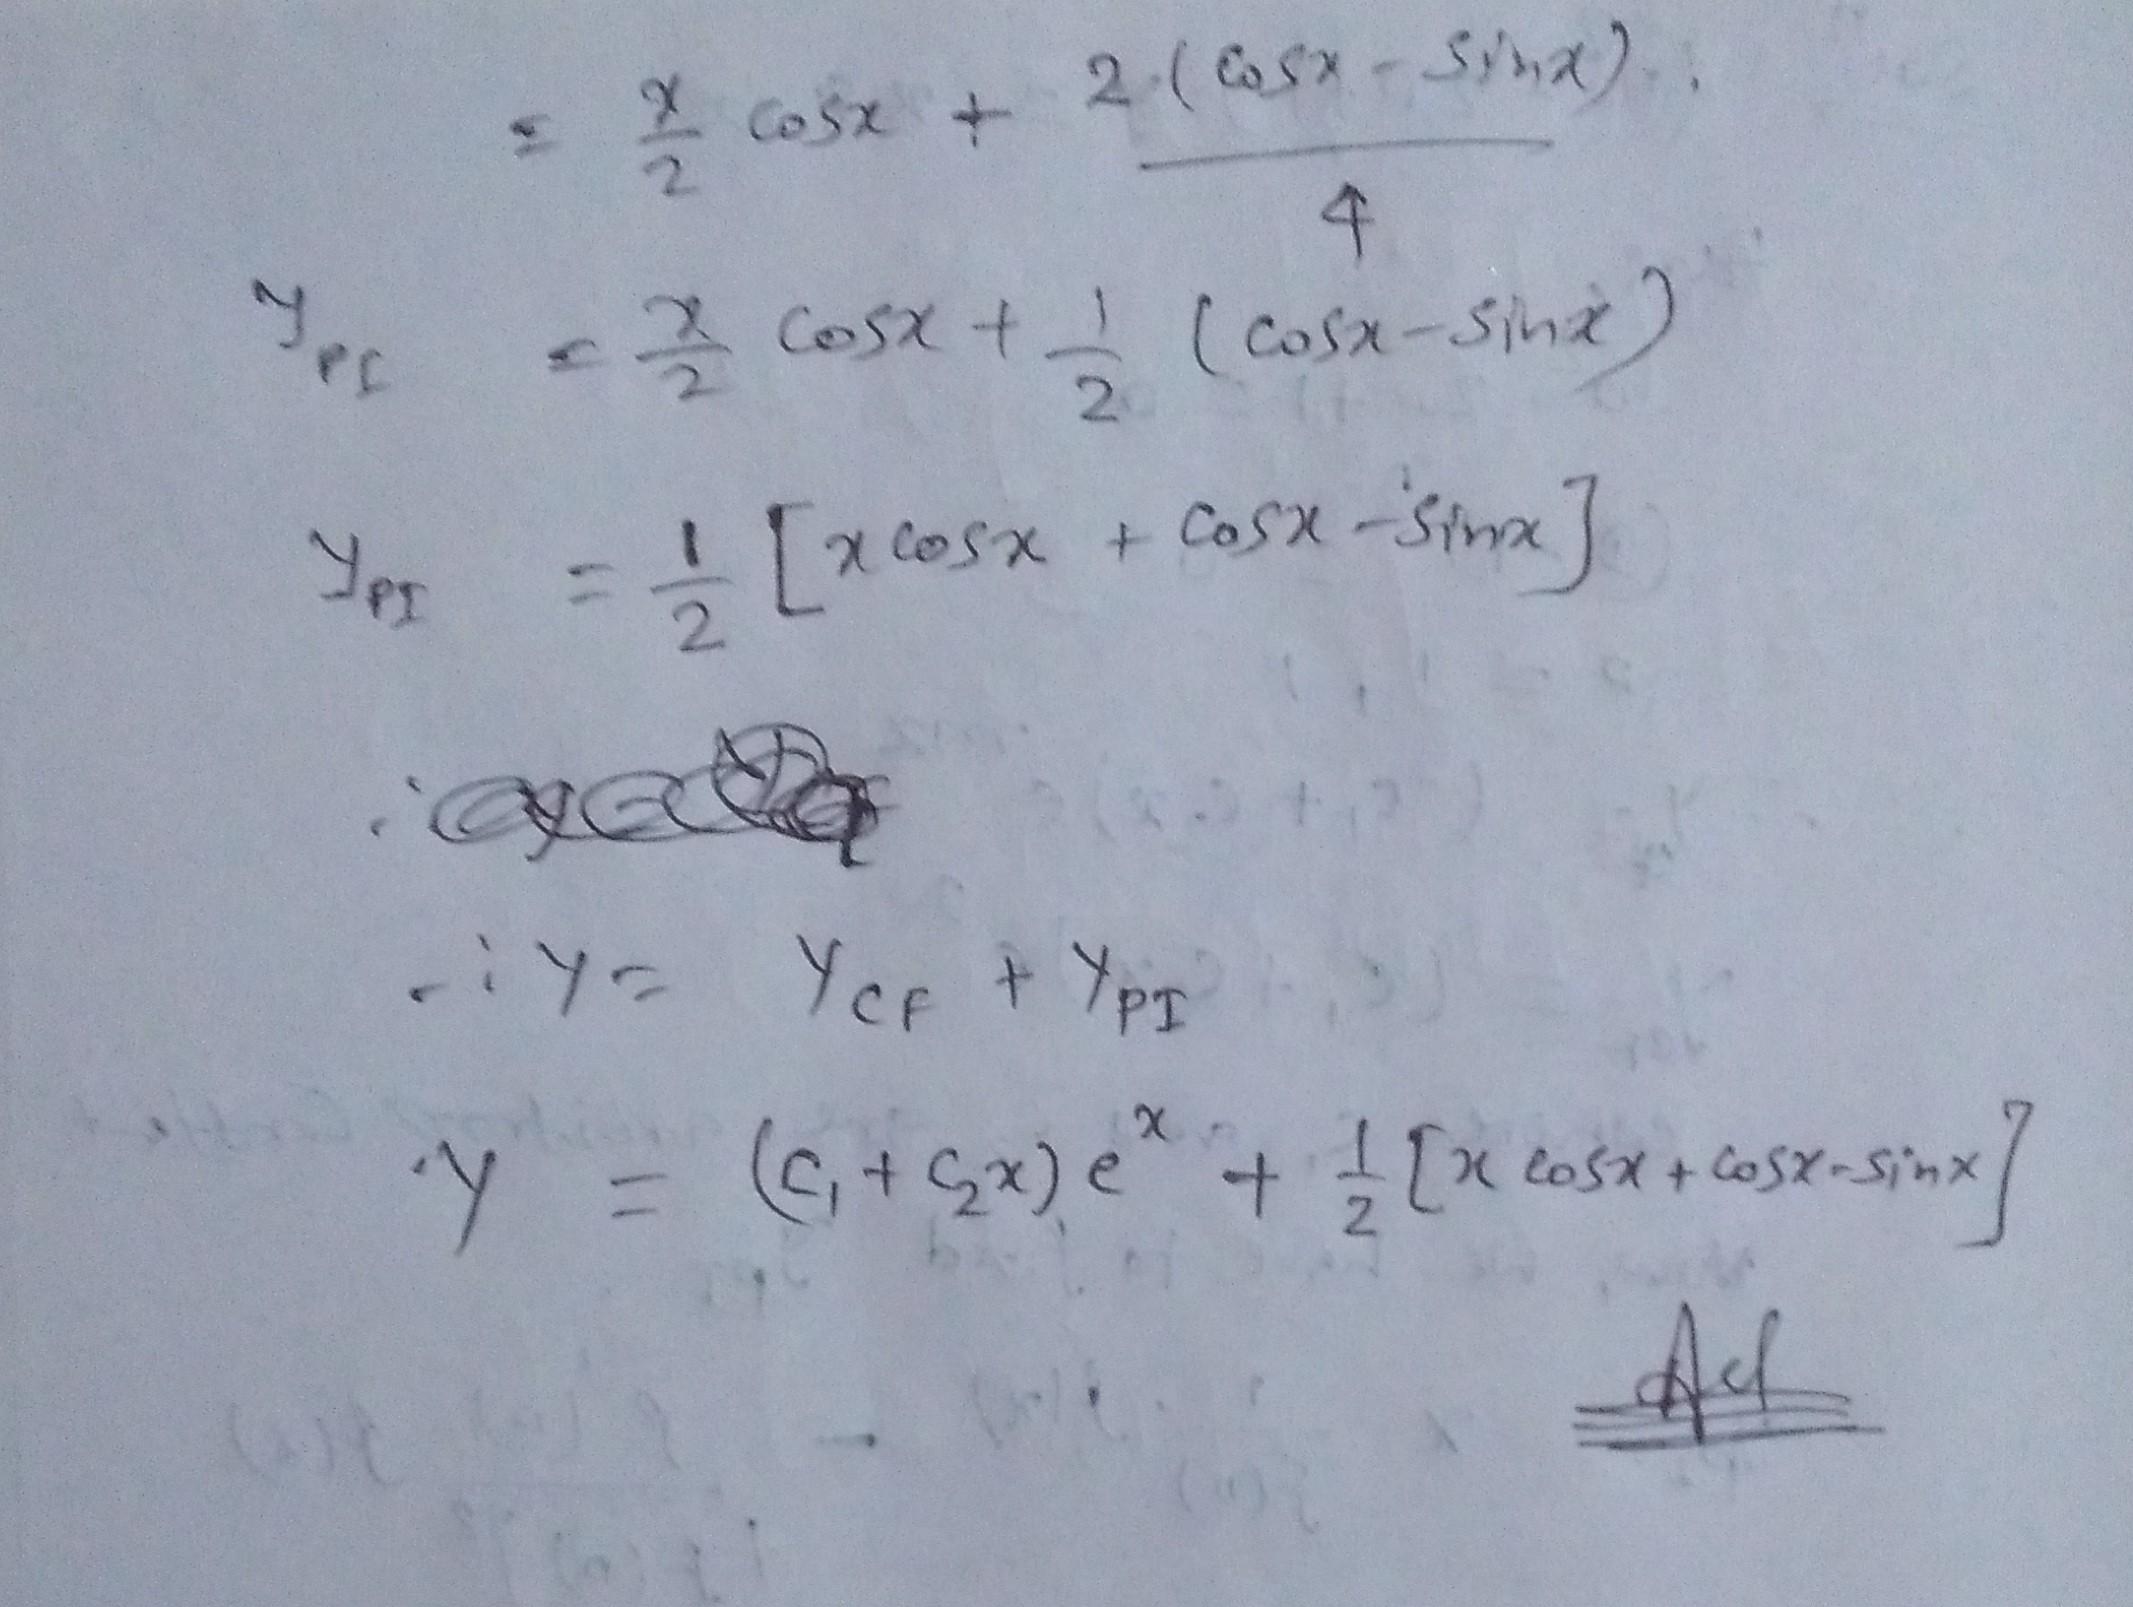 = x/2 cosx + 2(cosx - sinx)/4
y_PI = x/2 cosx + 1/2 (cosx - sinx)
y_PI = 1/2 [x cosx + cosx - sinx]
∴ y = y_CF + y_PI
y = (c₁ + c₂x) e^x + 1/2 [x cosx + cosx - sinx]